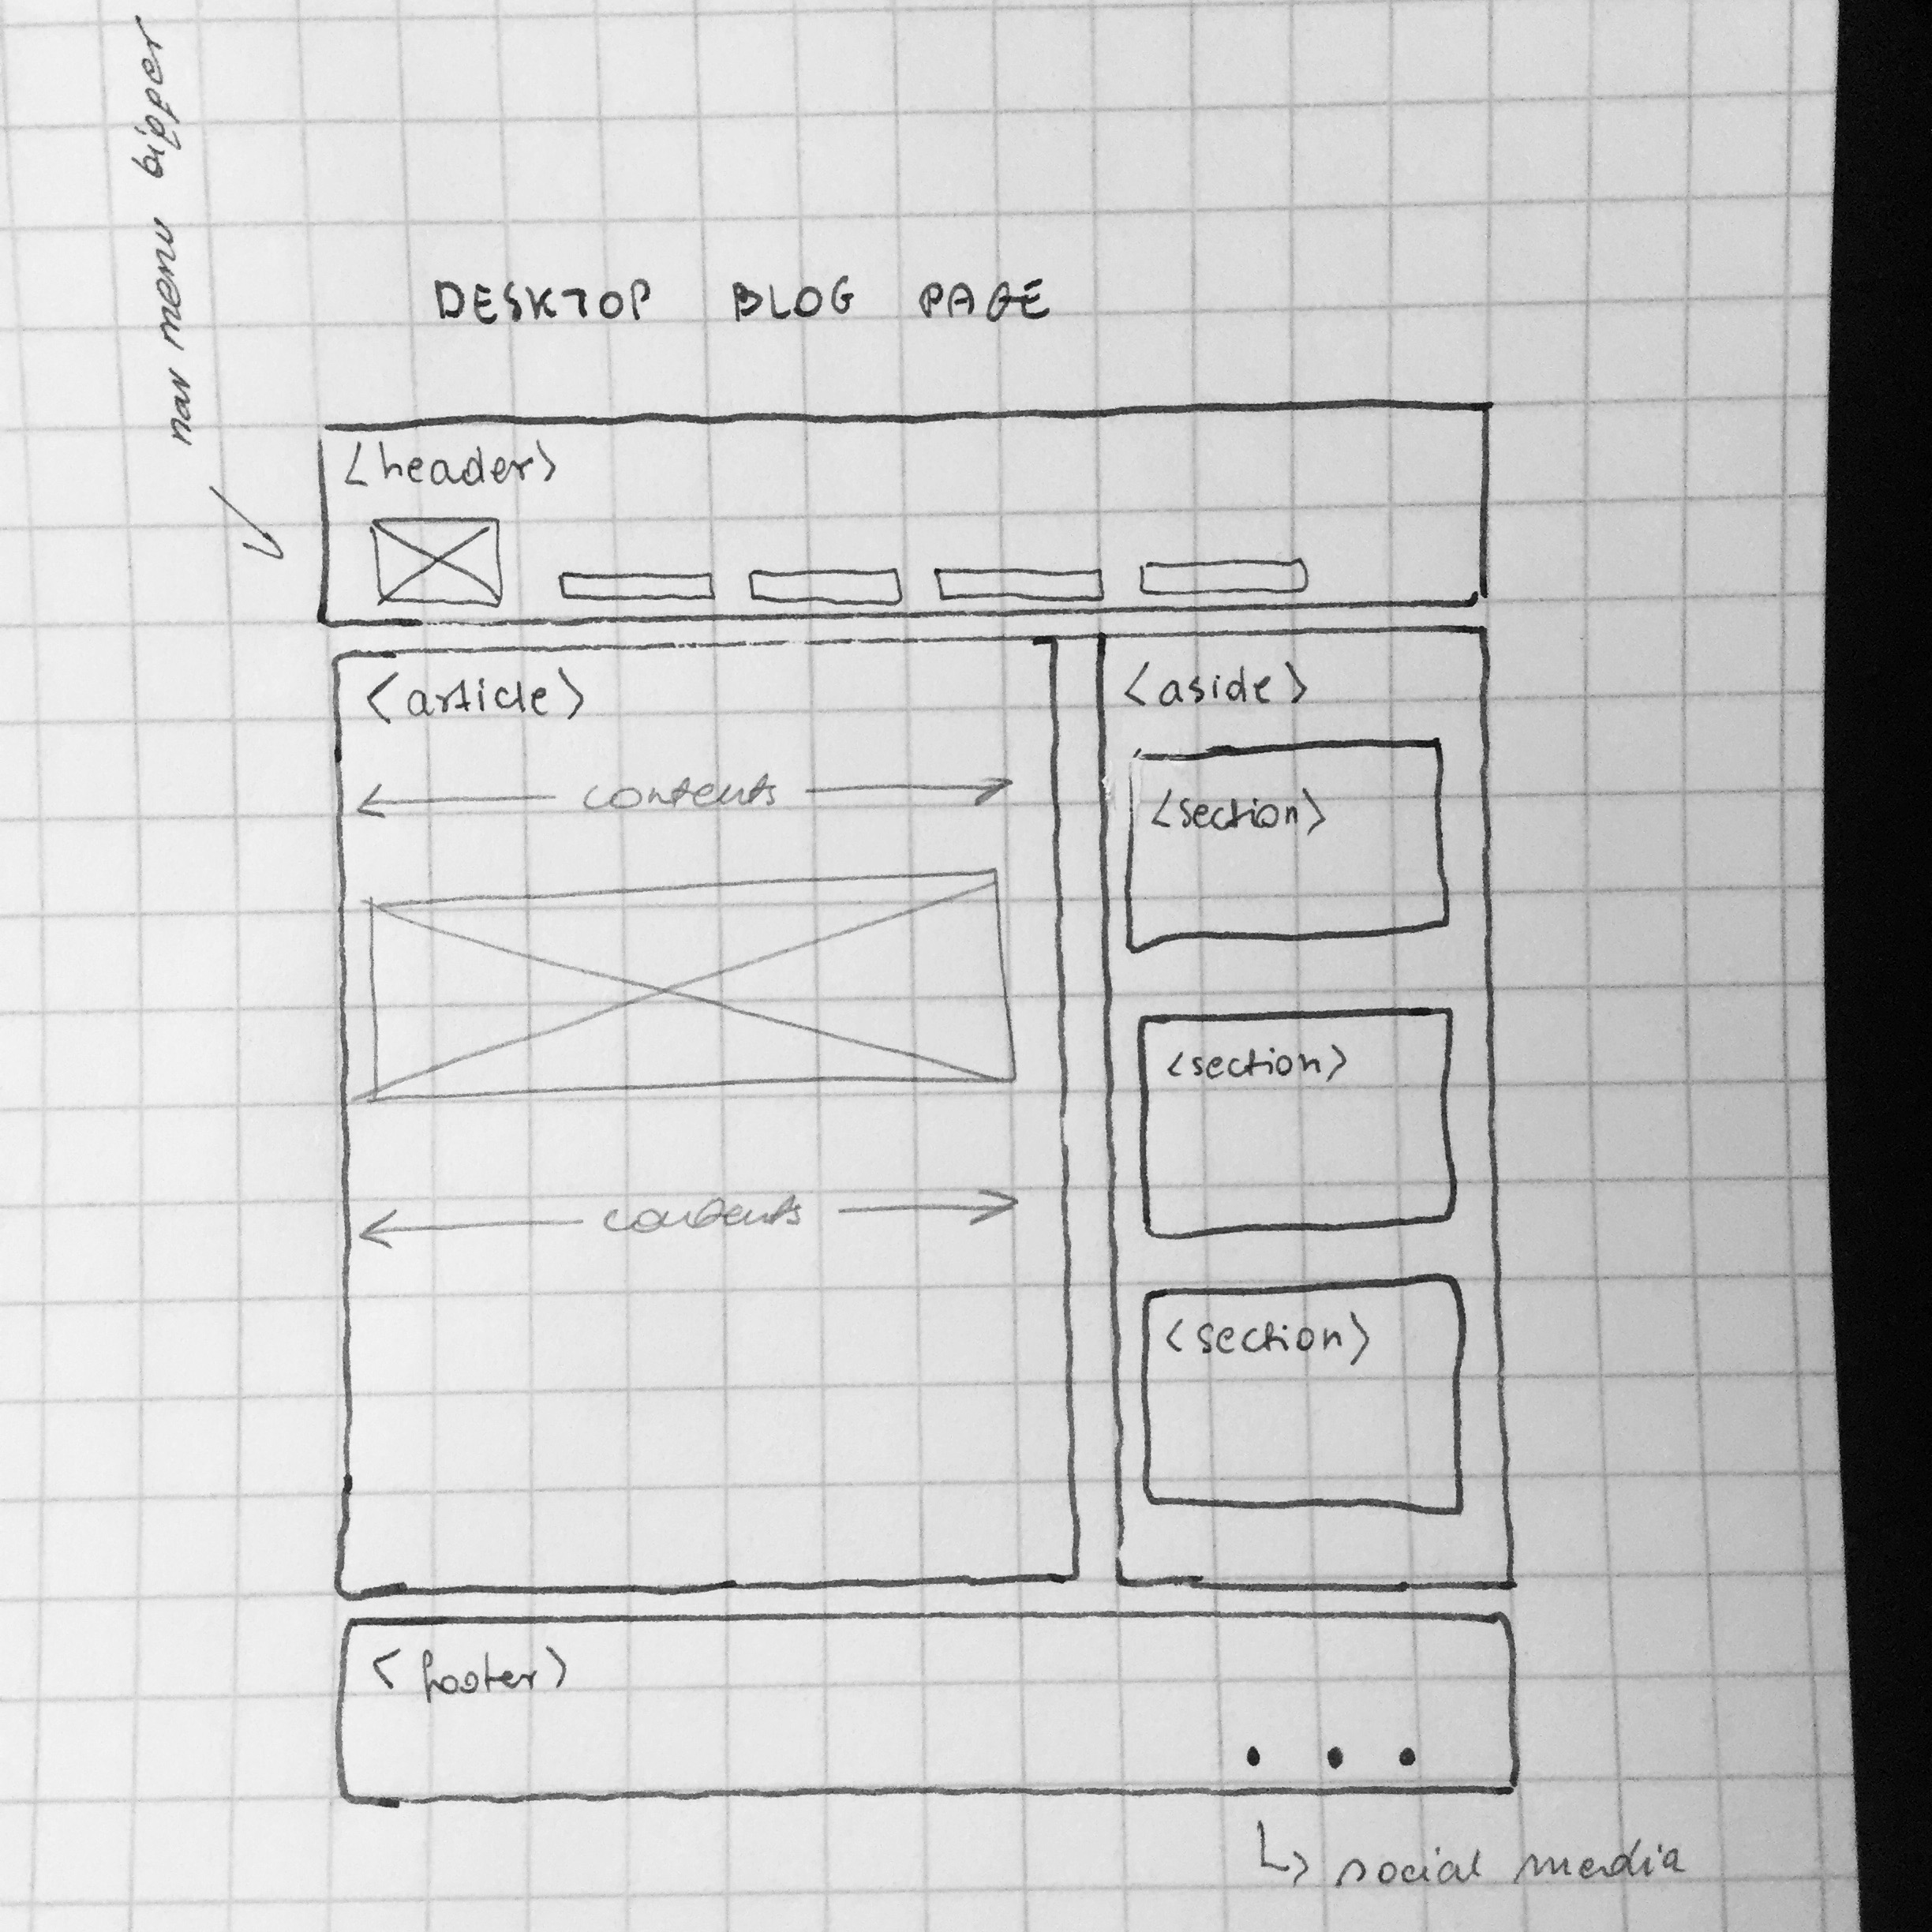 nav menu bigger
DESKTOP BLOG PAGE
<header>
<article>
contents
contents
<aside>
<section>
<section>
<section>
<footer>
social media